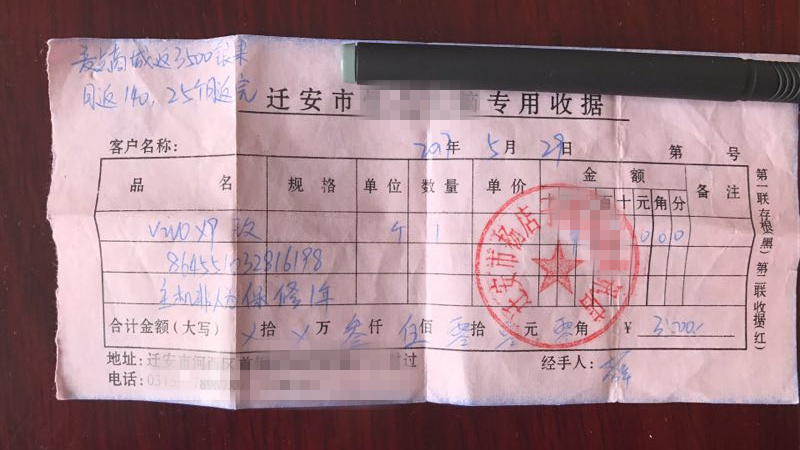 商城返3500
月返140,25个月返完
迁安市 专用收据
客户名称: 2017年 5月 29日 第 号
品名 规格 单位 数量 单价 金额 备注
百十元角分
vivo X9 玫 个 1 000
864551032816198
主机非人为保修1年
合计金额(大写) ×拾 ×万 叁仟 伍佰 零拾 元 零角 ¥
地址:迁安市河西区 过
电话:03 经手人:
第一联存根(黑) 第二联收据(红)
迁安市杨店子